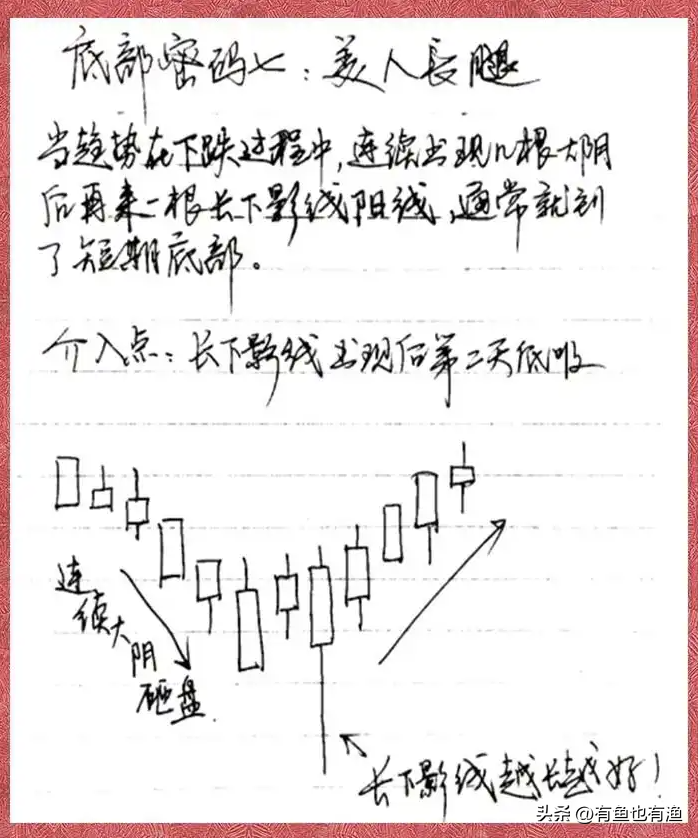 底部密码七：美人長腿
当趋势在下跌过程中，连续出现几根大阴
后再来一根长下影线阳线，通常就到
了短期底部。
介入点：长下影线出现后第二天低吸
连续大阴
砸盘
长下影线越长越好！
头条 @有鱼也有渔